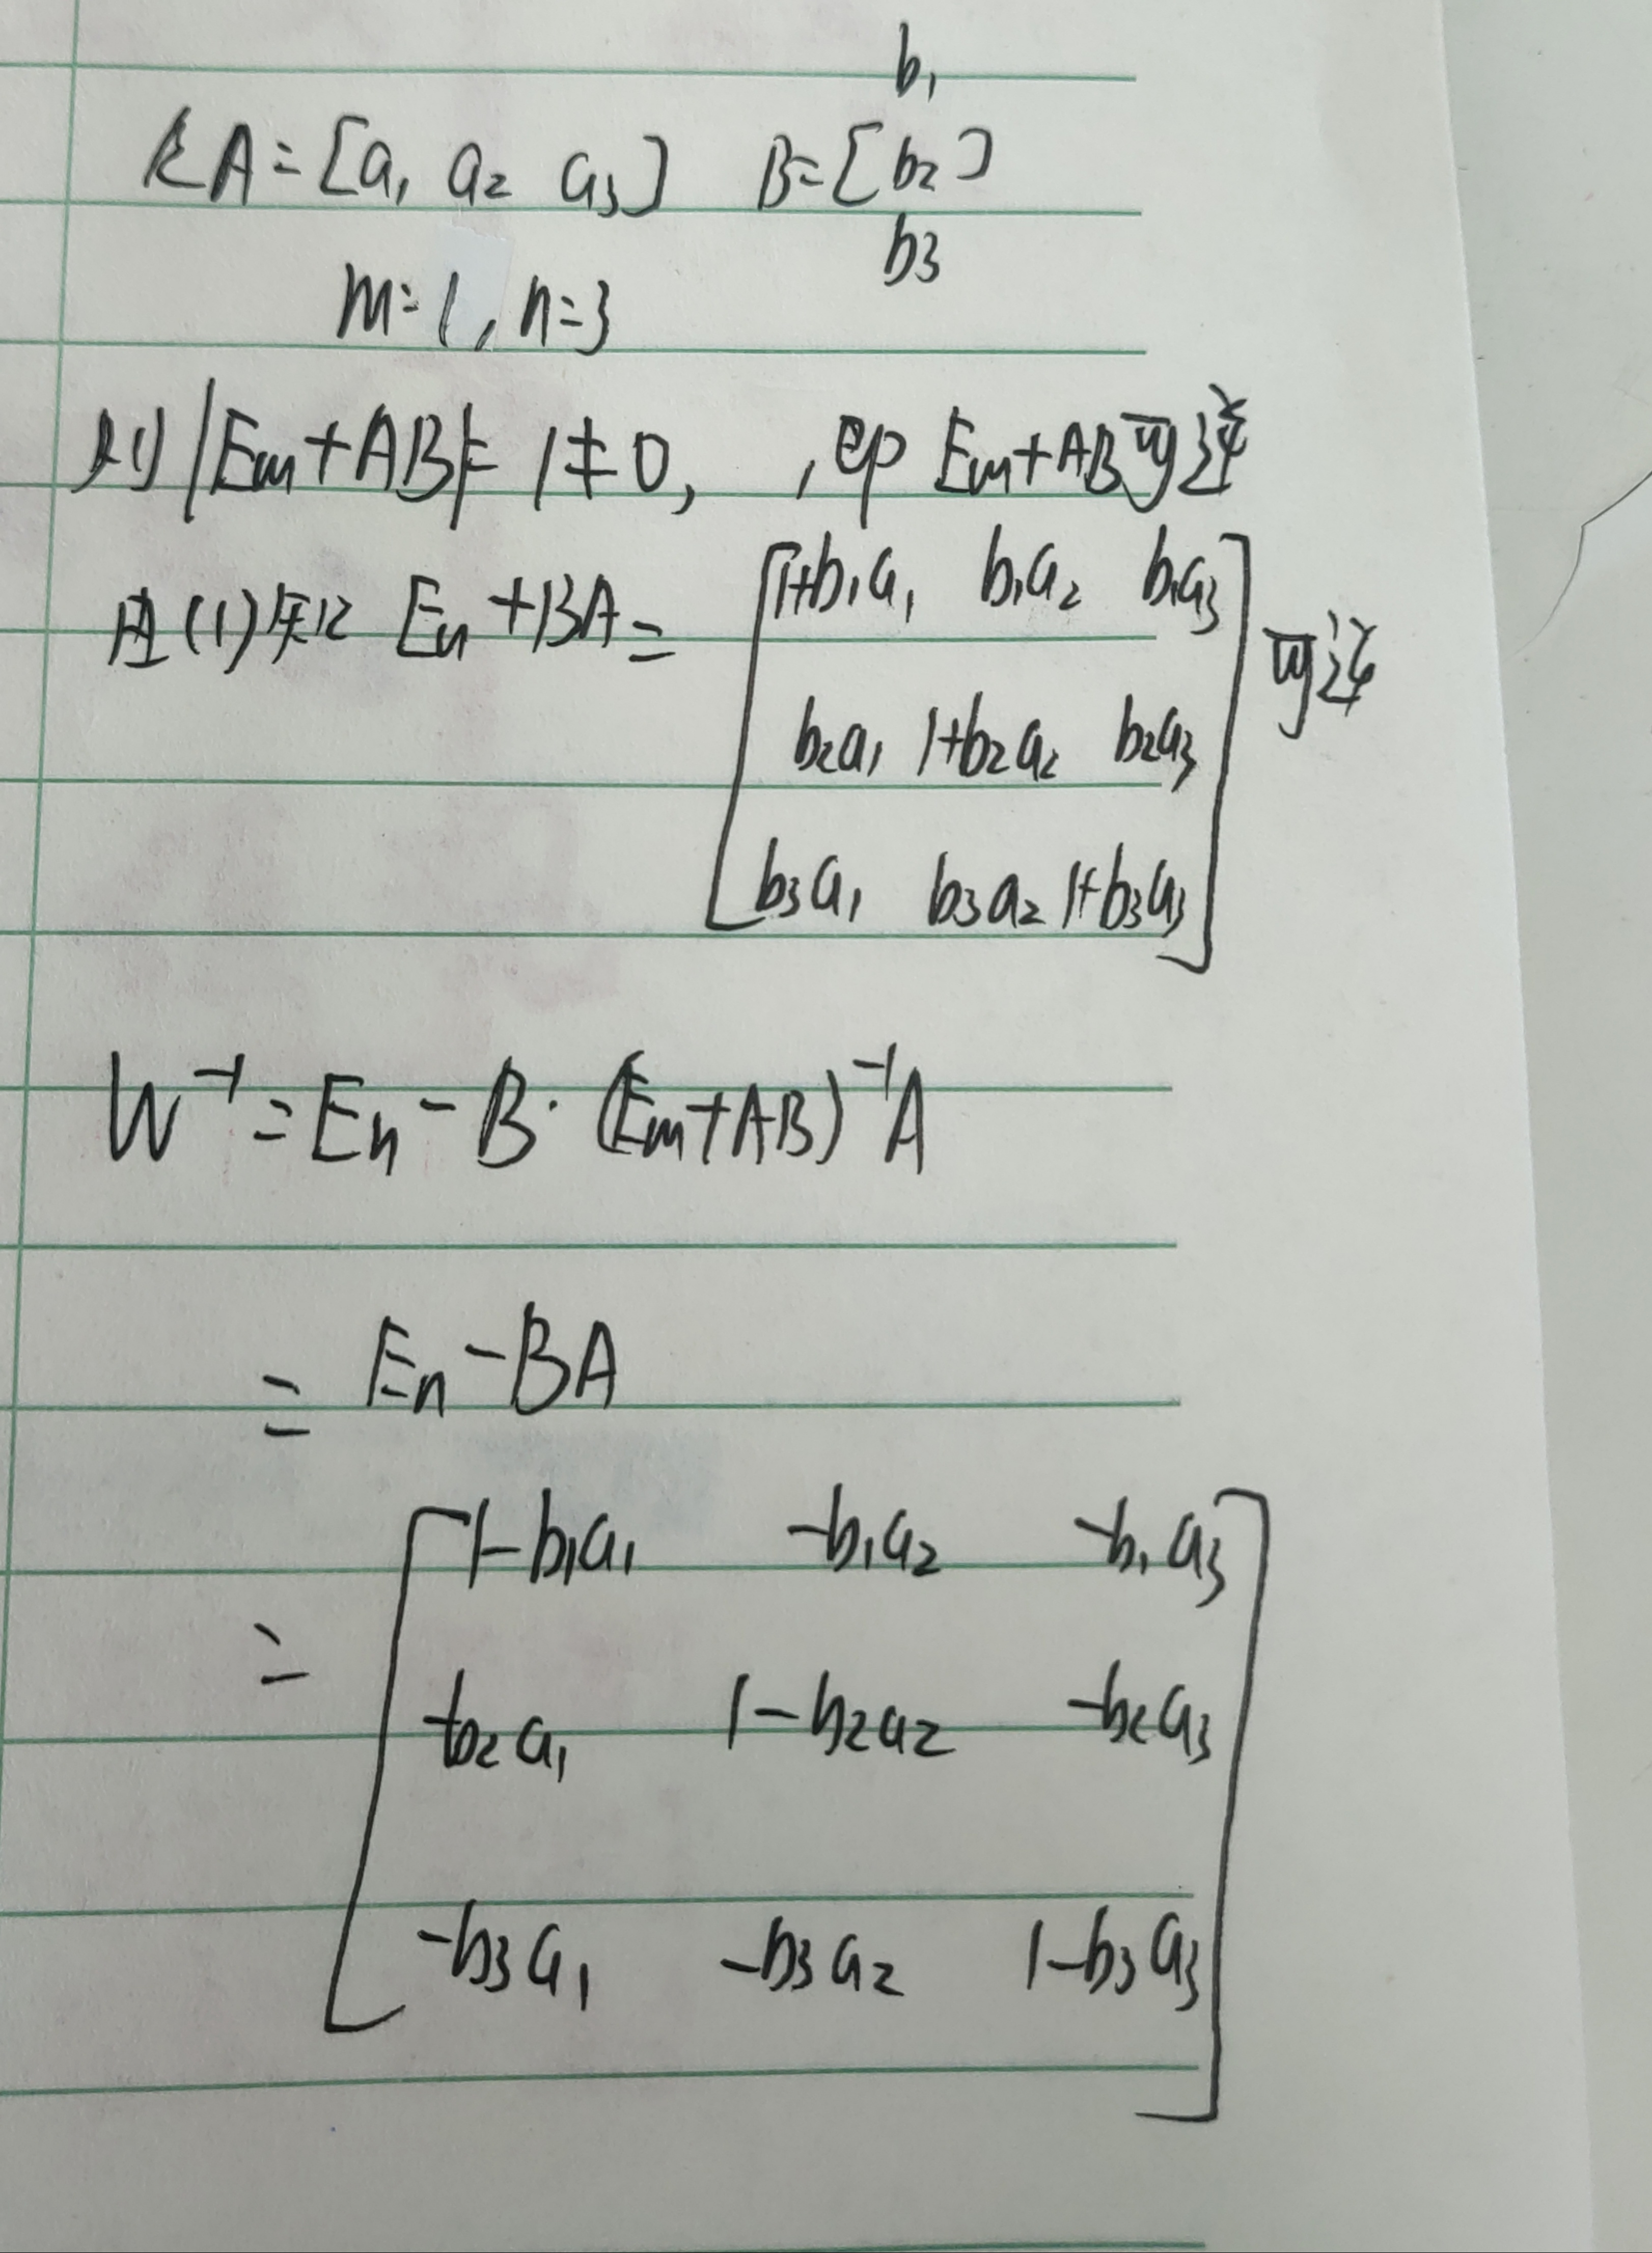 b₁
令A=[a₁ a₂ a₃] B=[b₂]
b₃
m=1, n=3
则|Em+AB|=1≠0, ,即 Em+AB可逆
由(1)知 En+BA= [1+b₁a₁ b₁a₂ b₁a₃
b₂a₁ 1+b₂a₂ b₂a₃
b₃a₁ b₃a₂ 1+b₃a₃] 可逆
W⁻¹=En-B·(Em+AB)⁻¹A
=En-BA
= [1-b₁a₁ -b₁a₂ -b₁a₃
-b₂a₁ 1-b₂a₂ -b₂a₃
-b₃a₁ -b₃a₂ 1-b₃a₃]